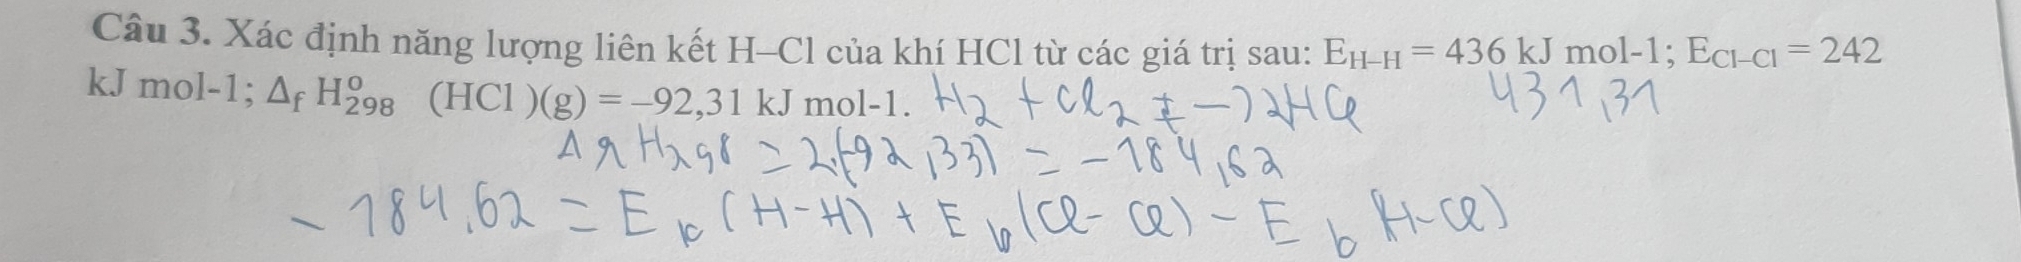 Câu 3. Xác định năng lượng liên kết H–Cl của khí HCl từ các giá trị sau: E_H–H = 436 kJ mol-1; E_Cl–Cl = 242
kJ mol-1; Δf H°298 (HCl )(g) = –92,31 kJ mol-1. H2 + Cl2 -> 2HCl 431,31
Δr H298 = 2.(-92,33) = -184,62
- 184,62 = E (H-H) + Eb (Cl- Cl) - Eb (H-Cl)